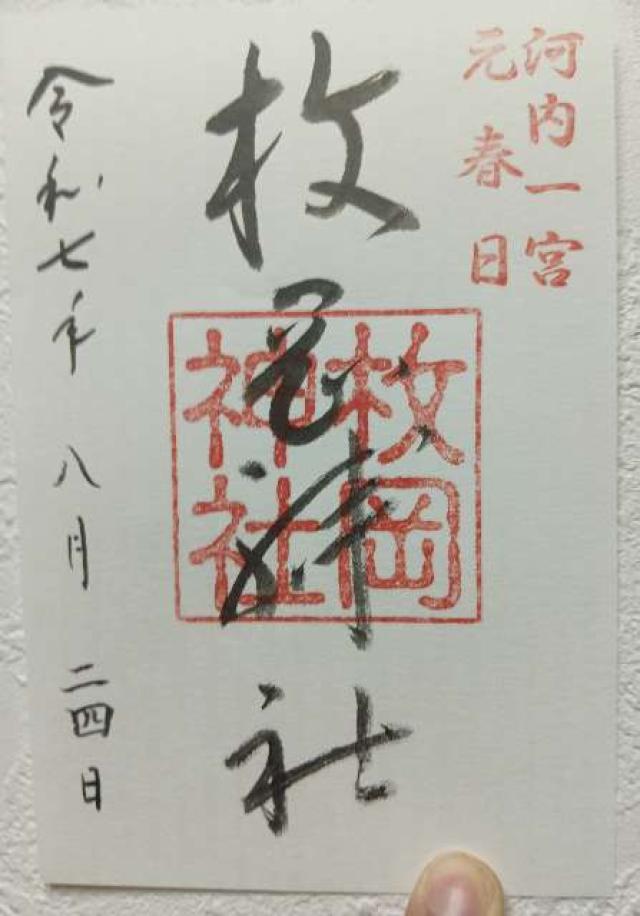 河内一宮
元春日
枚岡神社
枚岡
神社
令和七年 八月 二四日